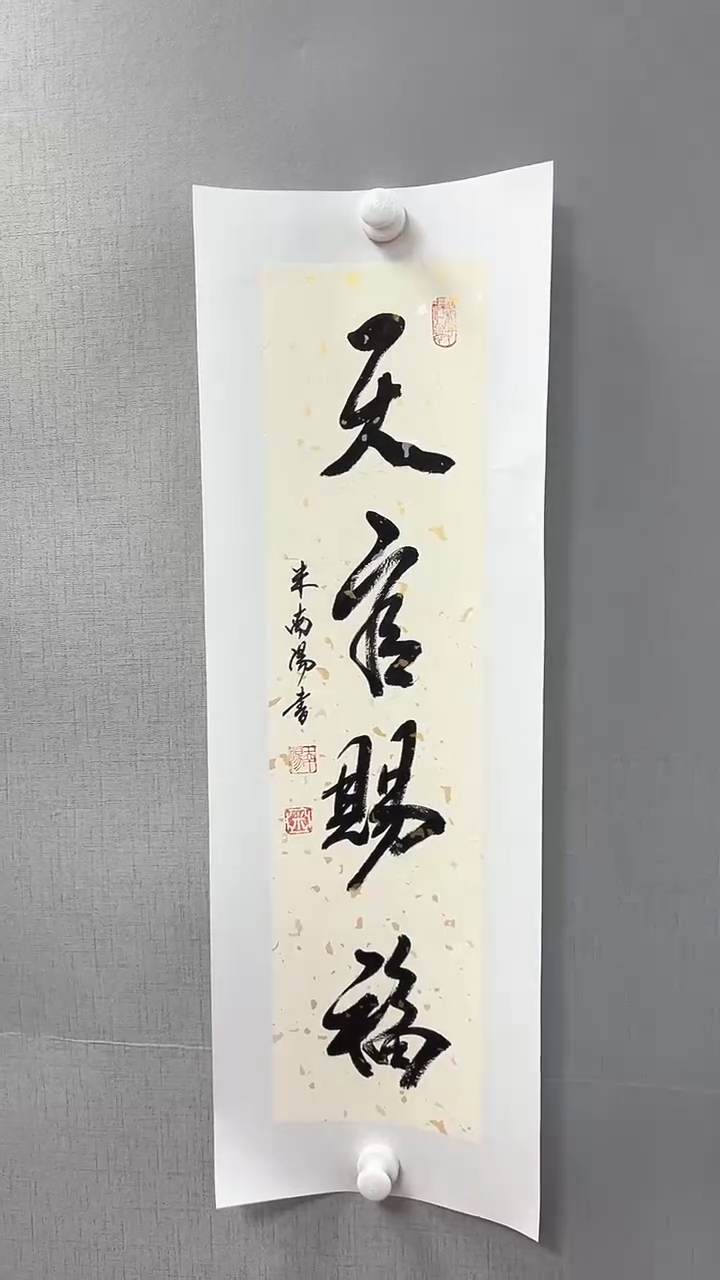 天官賜福
米南陽書